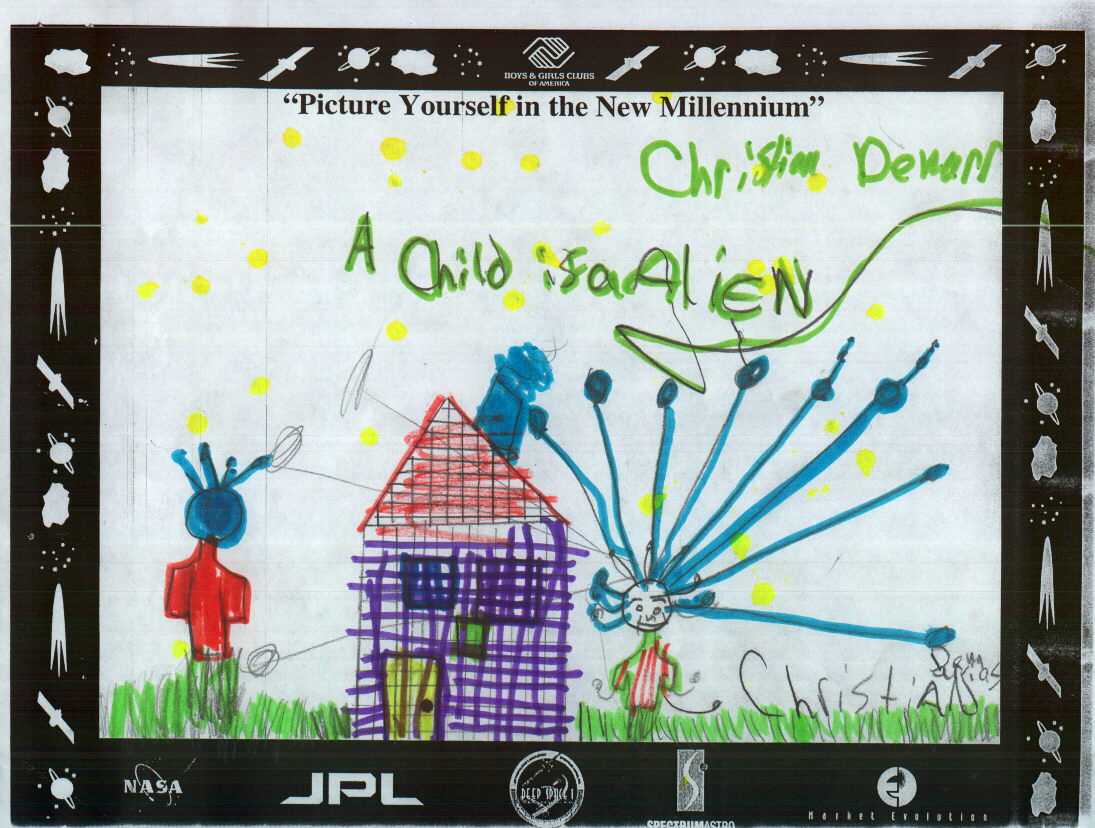 BOYS & GIRLS CLUBS
OF AMERICA
“Picture Yourself in the New Millennium”
Christian
A Child is a AliEN
ChristiAN
NASA
JPL
DEEP SPACE 1
SPECTRUMASTRO
Market Evolution